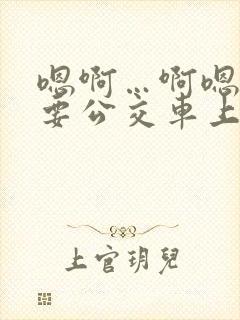 嗯啊…啊嗯
要公交车上
上官玥兒